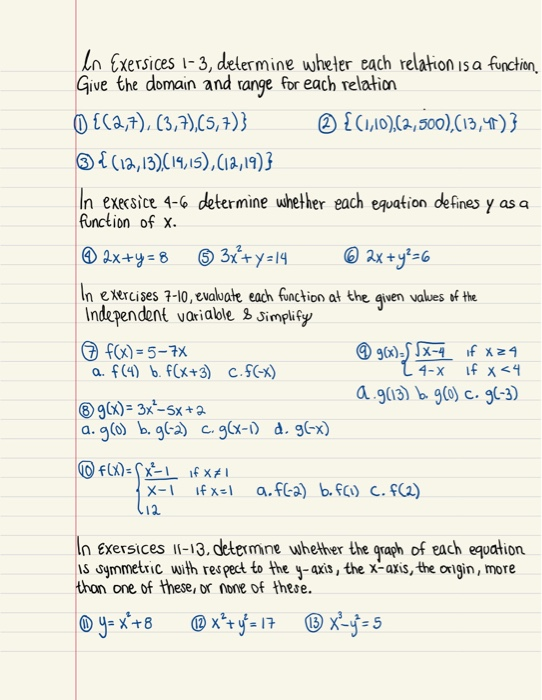 In Exersices 1-3, determine wheter each relation is a function.
Give the domain and range for each relation
① {(2,7), (3,7),(5,7)} ② {(1,10),(2,500),(13,4π)}
③ {(12,13)(14,15),(12,19)}
In exersice 4-6 determine whether each equation defines y as a
function of x.
④ 2x+y=8 ⑤ 3x²+y=14 ⑥ 2x+y²=6
In exercises 7-10, evaluate each function at the given values of the
Independent variable & simplify
⑦ f(x)=5-7x
a. f(4) b. f(x+3) c. f(-x)
⑨ g(x)={√x-4 if x≥4
4-x if x<4
a. g(13) b. g(0) c. g(-3)
⑧ g(x)=3x²-5x+2
a. g(0) b. g(-2) c. g(x-1) d. g(-x)
⑩ f(x)={x²-1 if x≠1
x-1 if x=1 a. f(-2) b. f(1) c. f(2)
12
In Exersices 11-13, determine whether the graph of each equation
is symmetric with respect to the y-axis, the x-axis, the origin, more
than one of these, or none of these.
⑪ y=x²+8 ⑫ x²+y²=17 ⑬ x³-y²=5